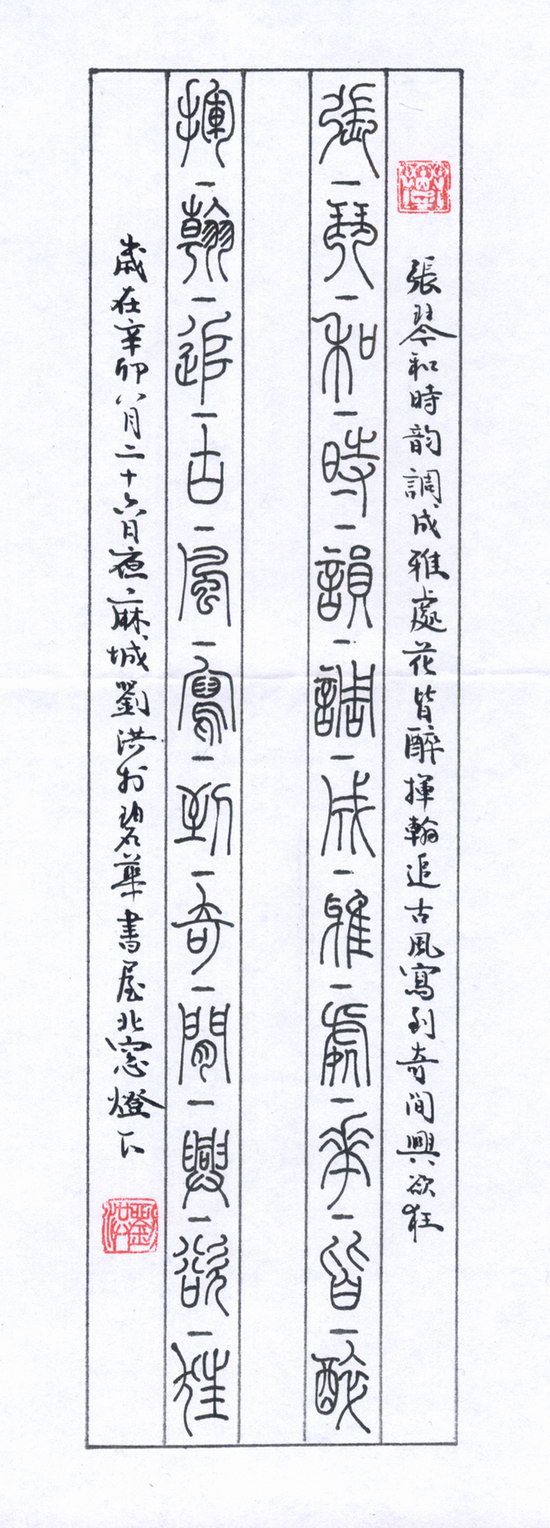 張琴和時韵調成雅處花皆醉揮翰追古風寫到奇间興欲狂
張琴和時韻調成雅處華皆醉
揮翰追古風寫到奇間興欲狂
歲在辛卯八月二十六日夜麻城劉洪於碧華書屋北窓燈下
劉洪